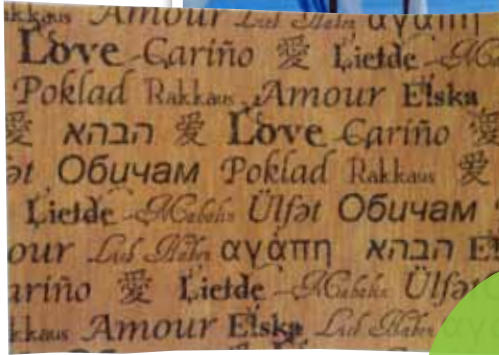 kkaus Amour Lieb Haben αγάπη
Love Cariño 愛 Liefde
Poklad Rakkaus Amour Elska
愛 הבהא 愛 Love Cariño 愛
ət Обичам Poklad Rakkaus 愛
Liefde Ülfət Обичам
our Lieb Haben αγάπη הבהא El
ariño 愛 Liefde Ülfət
kkaus Amour Elska Lieb Haben αγ